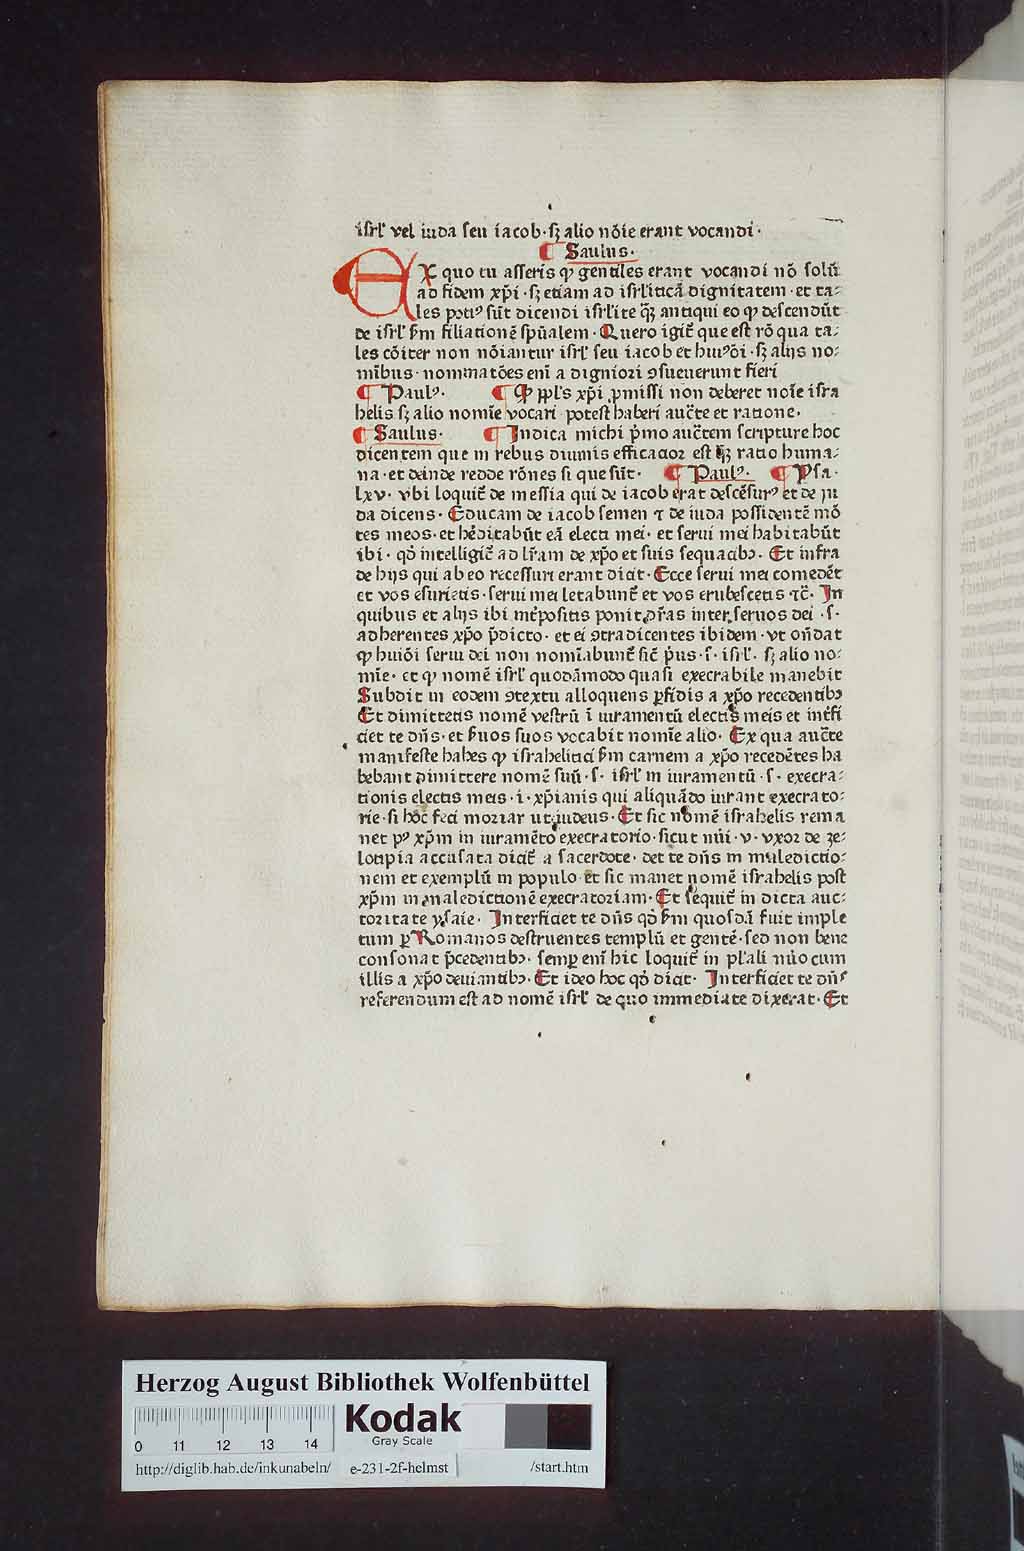 isrl' vel iuda seu iacob·sꝫ alio nōie erant vocandi·
¶ Saulus·
EX quo tu asseris ꝙ gentiles erant vocandi nō solū
ad fidem xp̄i·sꝫ etiam ad isrl'iticā dignitatem·et ta⸗
les potiꝰ sūt dicendi isrl'ite q̄ꝫ antiqui eo ꝙ descendūt
de isrl' ẜm filiationē sp̄ualem·Quero igit̄ que est rō qua ta⸗
les cōiter non nōiantur isrl' seu iacob et huiꝰōi·sꝫ alijs no⸗
mībus·nominatōes enī a digniori ꝯsueuerunt fieri
¶ Paulꝰ· ¶ Ꝙ ppl's xp̄i ꝓmissi non deberet noīe isra
helis sꝫ alio nomīe vocari potest haberi auc̄te et ratione·
¶ Saulus· ¶ Indica michi p̄mo auc̄tem scripture hoc
dicentem que in rebus diuinis efficacior est q̄ꝫ ratio huma⸗
na·et deinde redde rōnes si que sūt· ¶ Paulꝰ· ¶ Psa·
lxv·vbi loquit̄ de messia qui de iacob erat descēsurꝰ et de iu
da dicens·Educam de iacob semen ⁊ de iuda possidentē mō
tes meos·et hēditabūt eā electi mei·et serui mei habitabūt
ibi·qđ intelligit̄ ad l'ram de xp̄o et suis sequacibꝫ·Et infra
de hijs qui ab eo recessuri erant dicit·Ecce serui mei comedēt
et vos esurietis·serui mei letabunt̄ et vos erubescetis ⁊c̄·In
quibus et alijs ibi int̄positis ponit dr̄as inter seruos dei·s·
adherentes xp̄o p̄dicto·et ei ꝯtradicentes ibidem·vt on̄dat
ꝙ huiōi serui dei non nomīabunt̄ sic̄ p̄us·s·isrl'·sꝫ alio no⸗
mīe·et ꝙ nomē isrl' quodāmodo quasi execrabile manebit
Subdit in eodem ꝯtextu alloquens ꝑfidis a xp̄o recedentibꝫ
Et dimittetis nomē vestrū ī iuramentū electis meis et int̄fi
ciet te dn̄s·et ẜuos suos vocabit nomīe alio·Ex qua auc̄te
manifeste habes ꝙ israhelitici ẜm carnem a xp̄o recedētes ha
bebant dimittere nomē suū·s·isrl' in iuramentū·s·execra⸗
tionis electis meis·i·xp̄ianis qui aliquādo iurant execrato⸗
rie·si hōc feci moriar ut iudeus·Et sic nomē israhelis rema
net pꝰ xp̄m in iuramēto execratorio·sicut nūi·v·vxor de ze⸗
lotipia accusata dicit̄ a sacerdote·det te dn̄s in maledictio⸗
nem et exemplū in populo·et sic manet nomē israhelis post
xp̄m in maledictionē execratoriam·Et sequit̄ in dicta auc⸗
toritate ysaie·Interficiet te dn̄s qđ ẜm quosdā fuit imple
tum ꝑ Romanos destruentes templū et gentē·sed non bene
consonat p̄cedentibꝫ·semꝑ enī hic loquit̄ in pl'ali nūo cum
illis a xp̄o deuiantibꝫ·Et ideo hoc qđ dicit·Interficiet te dn̄s
referendum est ad nomē isrl' de quo immediate dixerat·Et
Herzog August Bibliothek Wolfenbüttel
Kodak
Gray Scale
0 11 12 13 14
http://diglib.hab.de/inkunabeln/ e-231-2f-helmst /start.htm